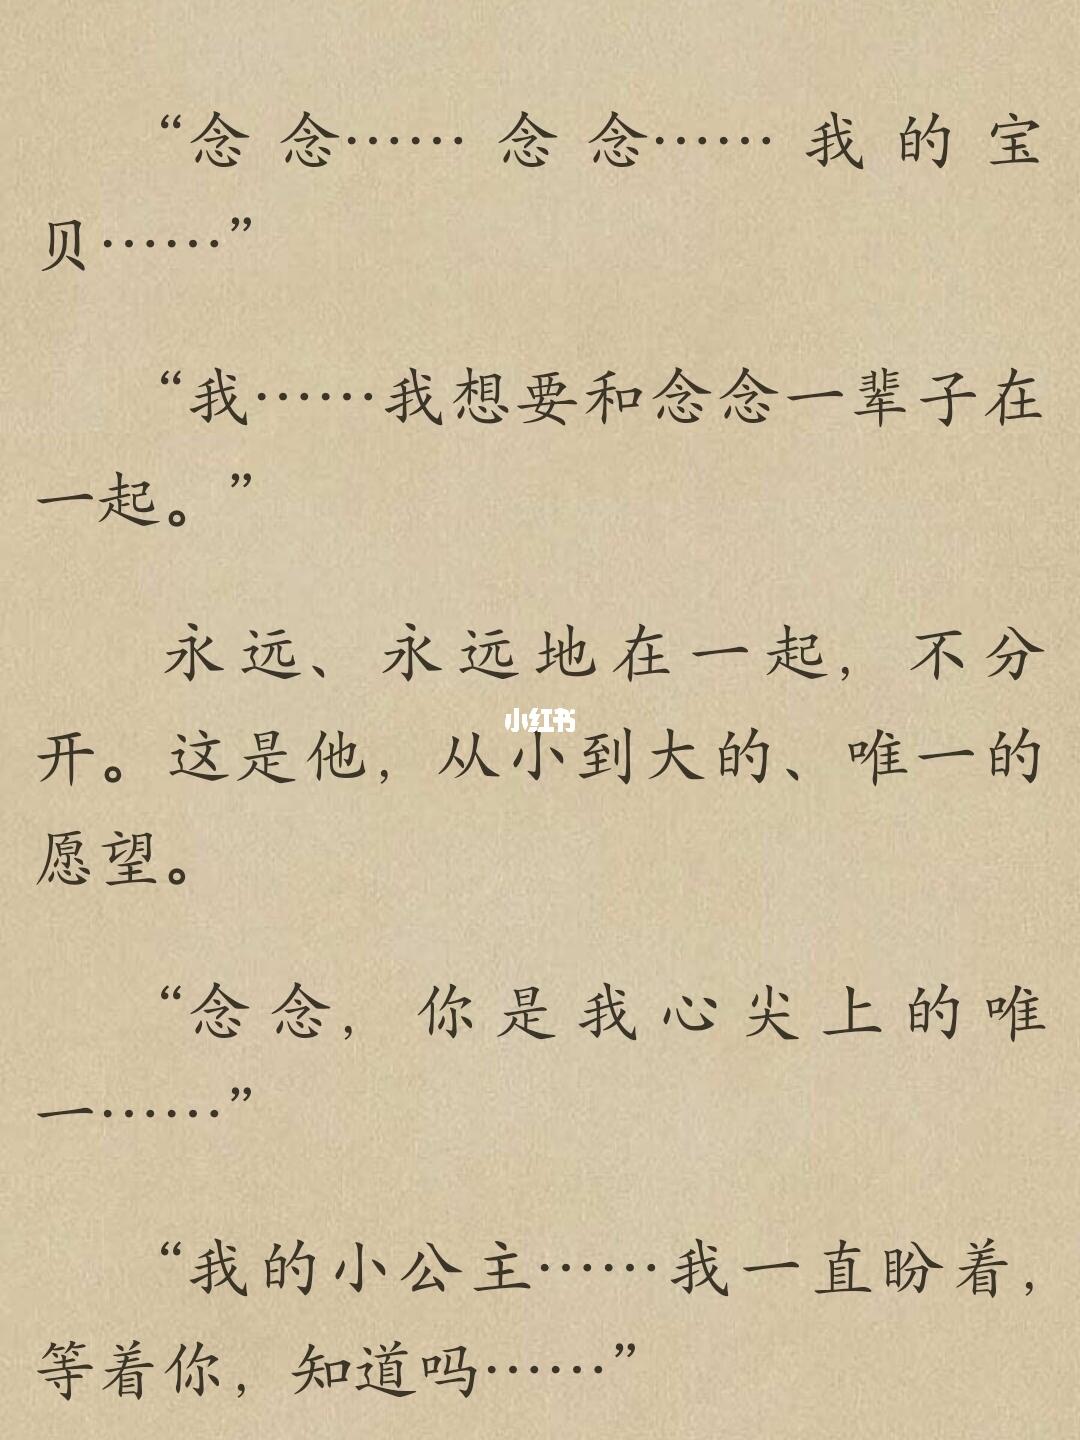 “念念……念念……我的宝
贝……”
“我……我想要和念念一辈子在
一起。”
永远、永远地在一起，不分
开。这是他，从小到大的、唯一的
愿望。
小红书
“念念，你是我心尖上的唯
一……”
“我的小公主……我一直盼着，
等着你，知道吗……”